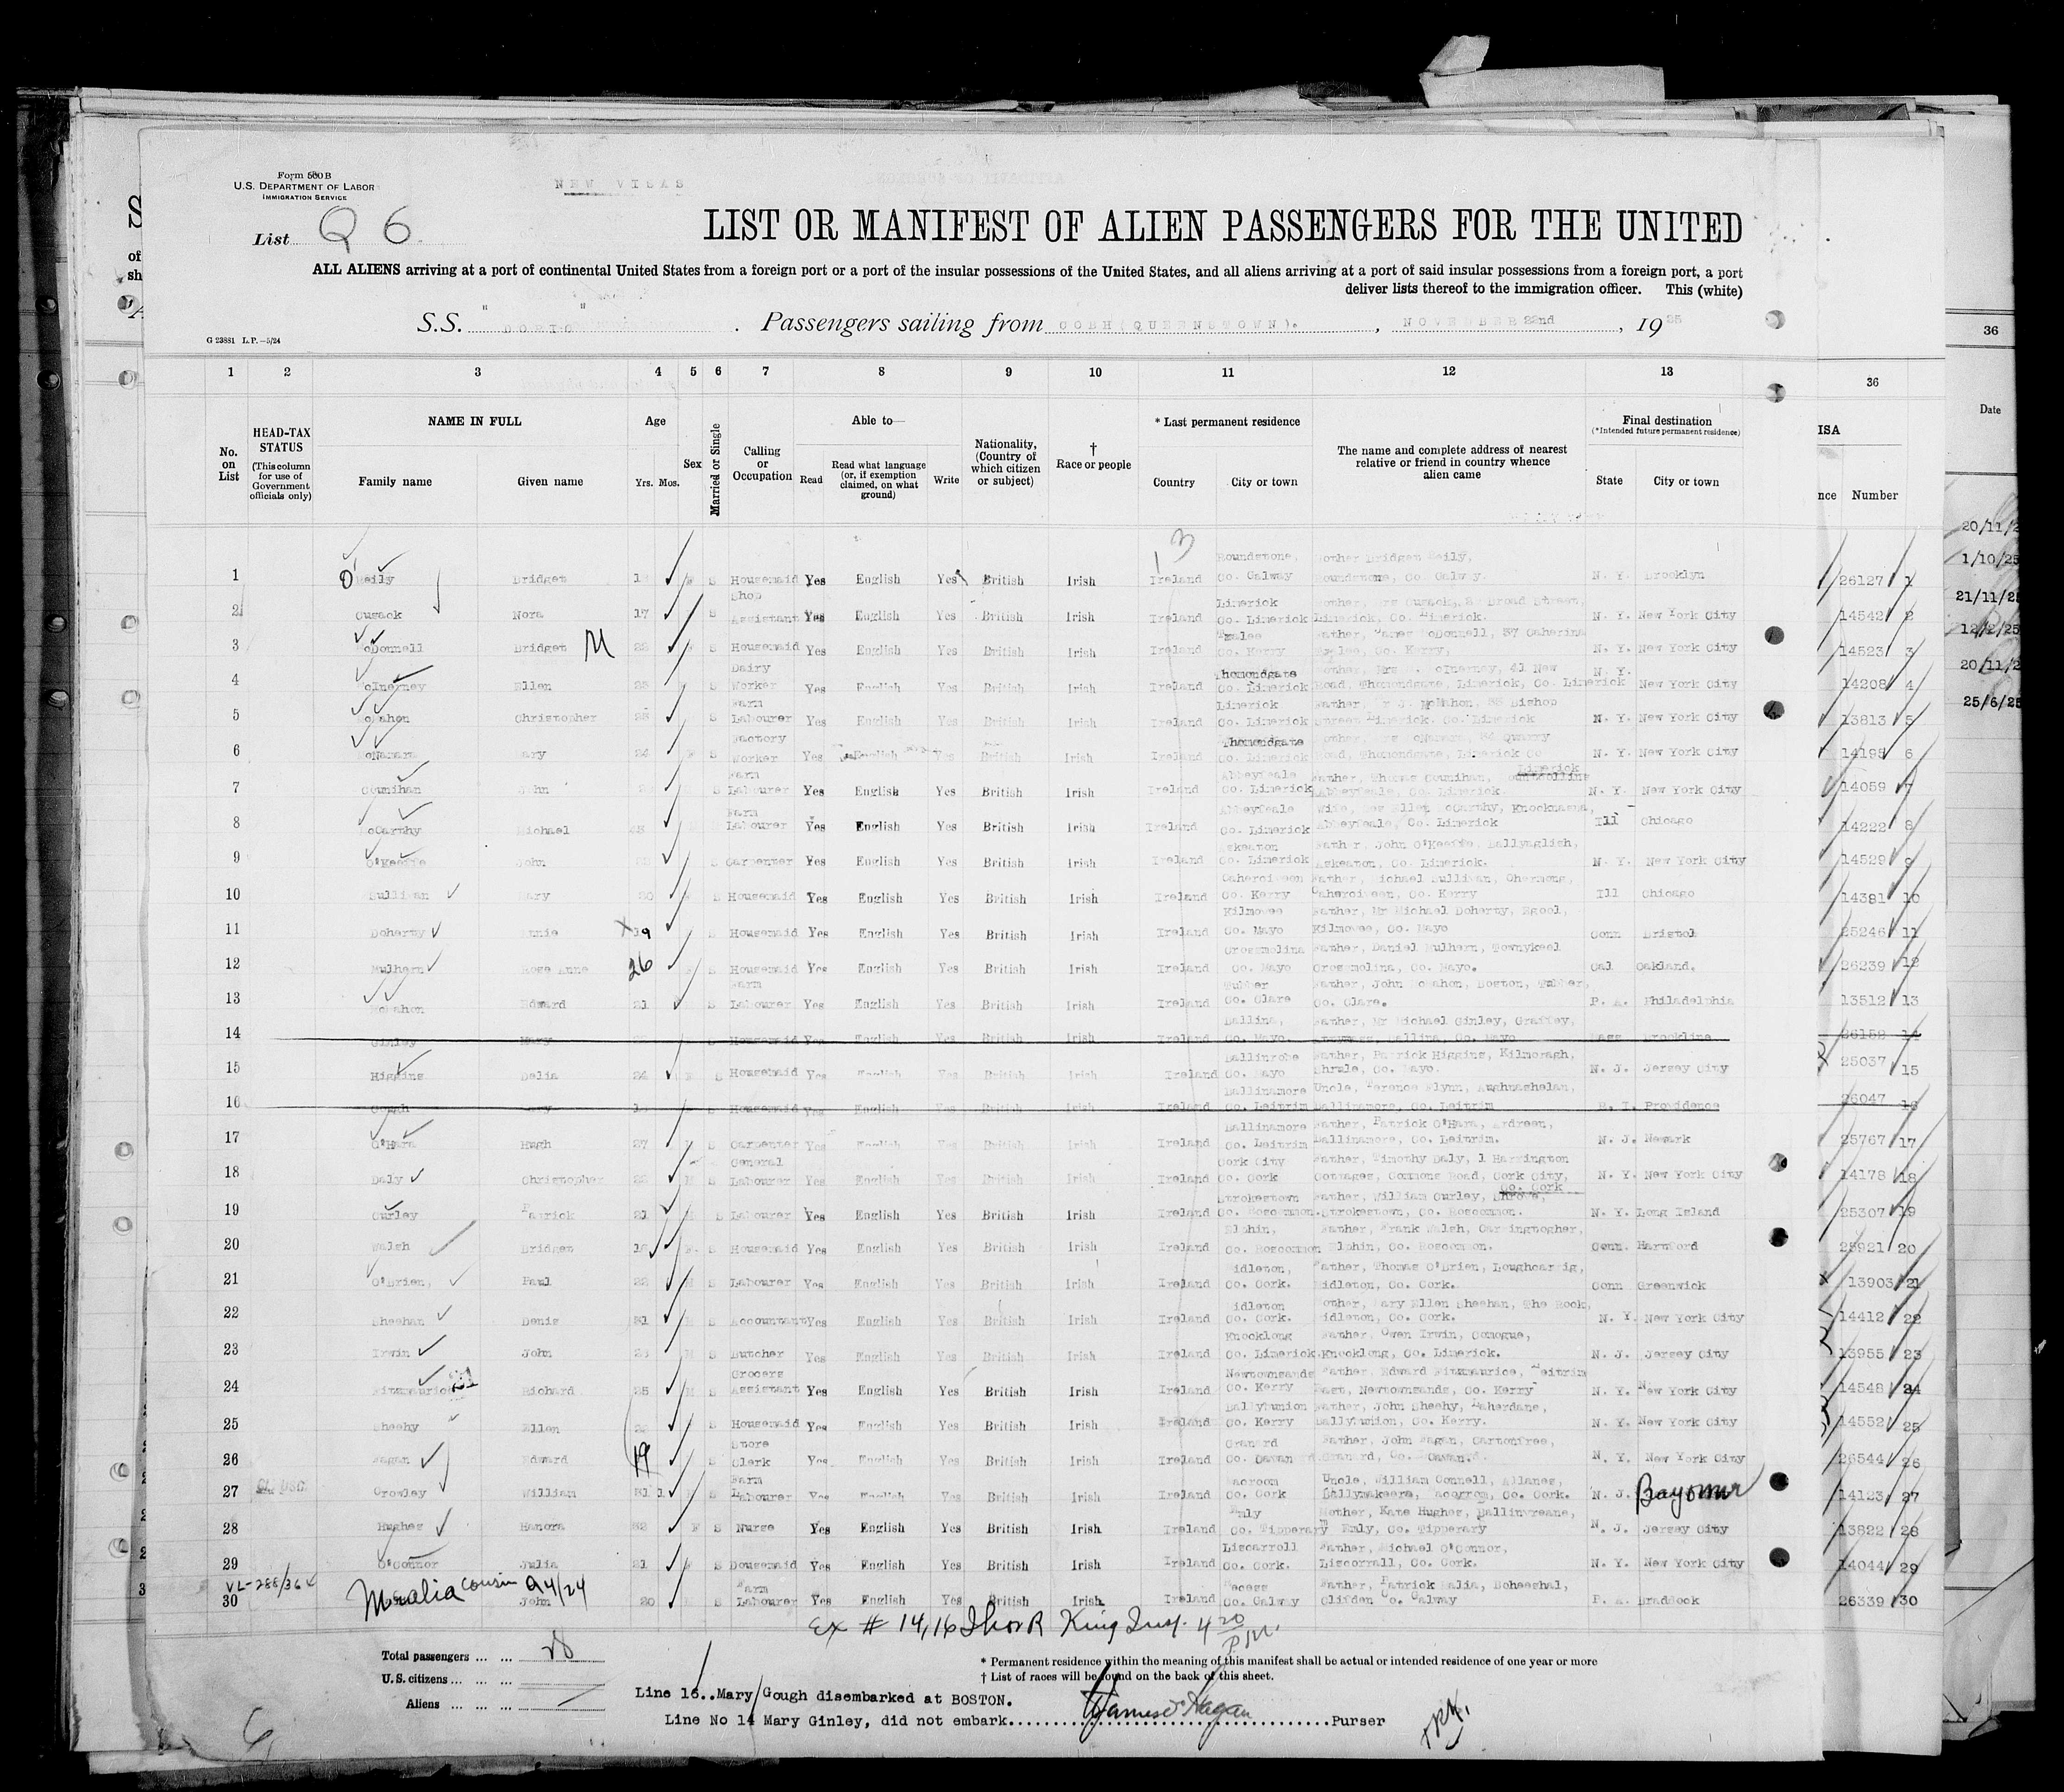 Form 500 B
U.S. DEPARTMENT OF LABOR
IMMIGRATION SERVICE
NEW VISAS
List Q 6
LIST OR MANIFEST OF ALIEN PASSENGERS FOR THE UNITED
ALL ALIENS arriving at a port of continental United States from a foreign port or a port of the insular possessions of the United States, and all aliens arriving at a port of said insular possessions from a foreign port, a port
deliver lists thereof to the immigration officer. This (white)
S.S. "DORIC" Passengers sailing from COBH (QUEENSTOWN). , NOVEMBER 22nd , 19 25
G 23881 L.P.—5/24
1 2 3 4 5 6 7 8 9 10 11 12 13 36
No. on List
HEAD-TAX STATUS (This column for use of Government officials only)
NAME IN FULL Family name Given name
Age Yrs. Mos.
Sex
Married or Single
Calling or Occupation
Able to— Read Read what language (or, if exemption claimed, on what ground) Write
Nationality, (Country of which citizen or subject)
† Race or people
* Last permanent residence Country City or town
The name and complete address of nearest relative or friend in country whence alien came
Final destination (*Intended future permanent residence) State City or town
ISA nce Number
36 Date
1 O'Reily Bridget S Housemaid Yes English Yes British Irish Ireland Roundstone, Co. Galway Mother Bridget Reily, Roundstone, Co. Galway. N. Y. Brooklyn 26127 1
2 Cusack Nora 17 S Shop Assistant Yes English Yes British Irish Ireland Limerick Co. Limerick Mother, Mrs Cusack, Broad Street, Limerick, Co. Limerick. N. Y. New York City 14542 2
3 McDonnell Bridget M S Housemaid Yes English Yes British Irish Ireland Tralee Co. Kerry Father, James McDonnell, Tralee, Co. Kerry, N. Y. New York City 14523 3
4 McInerney Ellen 25 S Dairy Worker Yes English Yes British Irish Ireland Thomondgate Co. Limerick Mother, Mrs McInerney, 41 New Road, Thomondgate, Limerick, Co. Limerick N. Y. New York City 14208 4
5 McMahon Christopher S Farm Labourer Yes English Yes British Irish Ireland Limerick Co. Limerick Father, Mr J. McMahon, Bishop Street Limerick. Co. Limerick N. Y. New York City 13813 5
6 McNamara Mary 24 F S Factory Worker Yes English Yes British Irish Ireland Thomondgate Co. Limerick Mother, Mrs McNamara, Quarry Road, Thomondgate, Limerick Co N. Y. New York City 14195 6
7 Counihan John S Farm Labourer Yes English Yes British Irish Ireland Abbeyfeale Co. Limerick Father, Thomas Counihan, Abbeyfeale, Co. Limerick. Limerick N. Y. New York City 14059 7
8 McCarthy Michael Farm Labourer Yes English Yes British Irish Ireland Abbeyfeale Co. Limerick Wife, Mrs Ellen McCarthy, Knocknasna, Abbeyfeale, Co. Limerick Ill Chicago 14222 8
9 O'Keeffe John S Carpenter Yes English Yes British Irish Ireland Askeaton Co. Limerick Father, John O'Keeffe, Ballynglish, Askeaton, Co. Limerick. N. Y. New York City 14529 9
10 Sullivan Mary 20 S Housemaid Yes English Yes British Irish Ireland Caherciveen Co. Kerry Father, Michael Sullivan, Ohermong, Caherciveen, Co. Kerry Ill Chicago 14381 10
11 Doherty Annie X 19 S Housemaid Yes English Yes British Irish Ireland Kilmovee Co. Mayo Father, Mr Michael Doherty, Egool, Kilmovee, Co. Mayo Conn Bristol 25246 11
12 Mulhern Rose Anne 26 S Housemaid Yes English Yes British Irish Ireland Crossmolina Co. Mayo Father, Daniel Mulhern, Townykeel Crossmolina, Co. Mayo. Cal Oakland. 26239 12
13 McMahon Edward 21 S Farm Labourer Yes English Yes British Irish Ireland Tubber Co. Clare Father, John McMahon, Boston, Tubber, Co. Clare. P. A. Philadelphia 13512 13
14 Ginley Mary Housemaid Yes English Yes British Irish Ireland Ballina, Co. Mayo. Father, Mr Michael Ginley, Graffey, Ballina, Co. Mayo Mass Brookline 26152 14
15 Higgins Delia 24 F S Housemaid Yes English Yes British Irish Ireland Ballinrobe Co. Mayo Father, Patrick Higgins, Kilmoragh, Shrule, Co. Mayo. N. J. Jersey City 25037 15
16 Gough Mary S Housemaid Yes English Yes British Irish Ireland Ballinamore Co. Leitrim Uncle, Terence Flynn, Aughnashelan, Ballinamore, Co. Leitrim R. I. Providence 26047 16
17 O'Hara Hugh 27 S Carpenter Yes English Yes British Irish Ireland Ballinamore Co. Leitrim Father, Patrick O'Hara, Ardreen, Ballinamore, Co. Leitrim. N. J. Newark 25767 17
18 Daly Christopher M S General Labourer Yes English Yes British Irish Ireland Cork City Co. Cork Father, Timothy Daly, 1 Harrington Cottages, Commons Road, Cork City, Co. Cork N. Y. New York City 14178 18
19 Curley Patrick 21 S Labourer Yes English Yes British Irish Ireland Strokestown Co. Roscommon. Father, William Curley, Strokestown, Co. Roscommon. N. Y. Long Island 25307 19
20 Walsh Bridget F. S Housemaid Yes English Yes British Irish Ireland Elphin, Co. Roscommon Father, Frank Walsh, Elphin, Co. Roscommon. Conn. Hartford 25921 20
21 O'Brien, Paul 22 M S Labourer Yes English Yes British Irish Ireland Midleton, Co. Cork. Father, Thomas O'Brien, Loughcarrig, Midleton, Co. Cork. Conn Greenwick 13903 21
22 Sheehan Denis 31 S Accountant Yes English Yes British Irish Ireland Midleton Co. Cork. Mother, Mary Ellen Sheehan, The Rock, Midleton, Co. Cork. N. Y. New York City 14412 22
23 Irwin John M S Butcher Yes English Yes British Irish Ireland Knocklong Co. Limerick Father, Owen Irwin, Conogue, Knocklong, Co. Limerick. N. J. Jersey City 13955 23
24 Fitzmaurice Richard 25 M S Grocers Assistant Yes English Yes British Irish Ireland Newtownsands Co. Kerry Father, Edward Fitzmaurice, Leitrim East, Newtownsands, Co. Kerry N. Y. New York City 14548 24
25 Sheehy Ellen S Housemaid Yes English Yes British Irish Ireland Ballybunion Co. Kerry Father, John Sheehy, Laherdane, Ballybunion, Co. Kerry. N. Y. New York City 14552 25
26 Fagan Edward 19 S Store Clerk Yes English Yes British Irish Ireland Granard Co. Cavan Father, John Fagan, Cartonfree, Granard, Co. Cavan. N. Y. New York City 26544 26
27 Crowley William S Farm Labourer Yes English Yes British Irish Ireland Macroom Co. Cork Uncle, William Connell, Allanes, Ballymakeera, Macroom, Co. Cork. N. J. Bayonne 14123 27
28 Hughes Hanora 32 F S Nurse Yes English Yes British Irish Ireland Emly Co. Tipperary Mother, Kate Hughes, Ballinvreane, Emly, Co. Tipperary N. J. Jersey City 13822 28
29 O'Connor Julia 21 F S Housemaid Yes English Yes British Irish Ireland Liscarroll Co. Cork. Father, Michael O'Connor, Liscorrall, Co. Cork. N. Y. New York City 14044 29
VL-288/36
30 Mealia cousin John 94/24 20 S Farm Labourer Yes English Yes British Irish Ireland Recess Co. Galway Father, Patrick Malia, Boheeshal, Clifden Co. Galway P. A. Bradbock 26339 30
20/11/2
1/10/25
21/11/25
12/2/25
20/11/2
25/6/25
Ex # 14,16 Thos R King Insp. 4 20 P.M.
Total passengers ... ... 28
U.S. citizens ... ...
Aliens ... ... ...
* Permanent residence within the meaning of this manifest shall be actual or intended residence of one year or more
† List of races will be found on the back of this sheet.
Line 16..Mary Gough disembarked at BOSTON.
Line No 14 Mary Ginley, did not embark. Purser